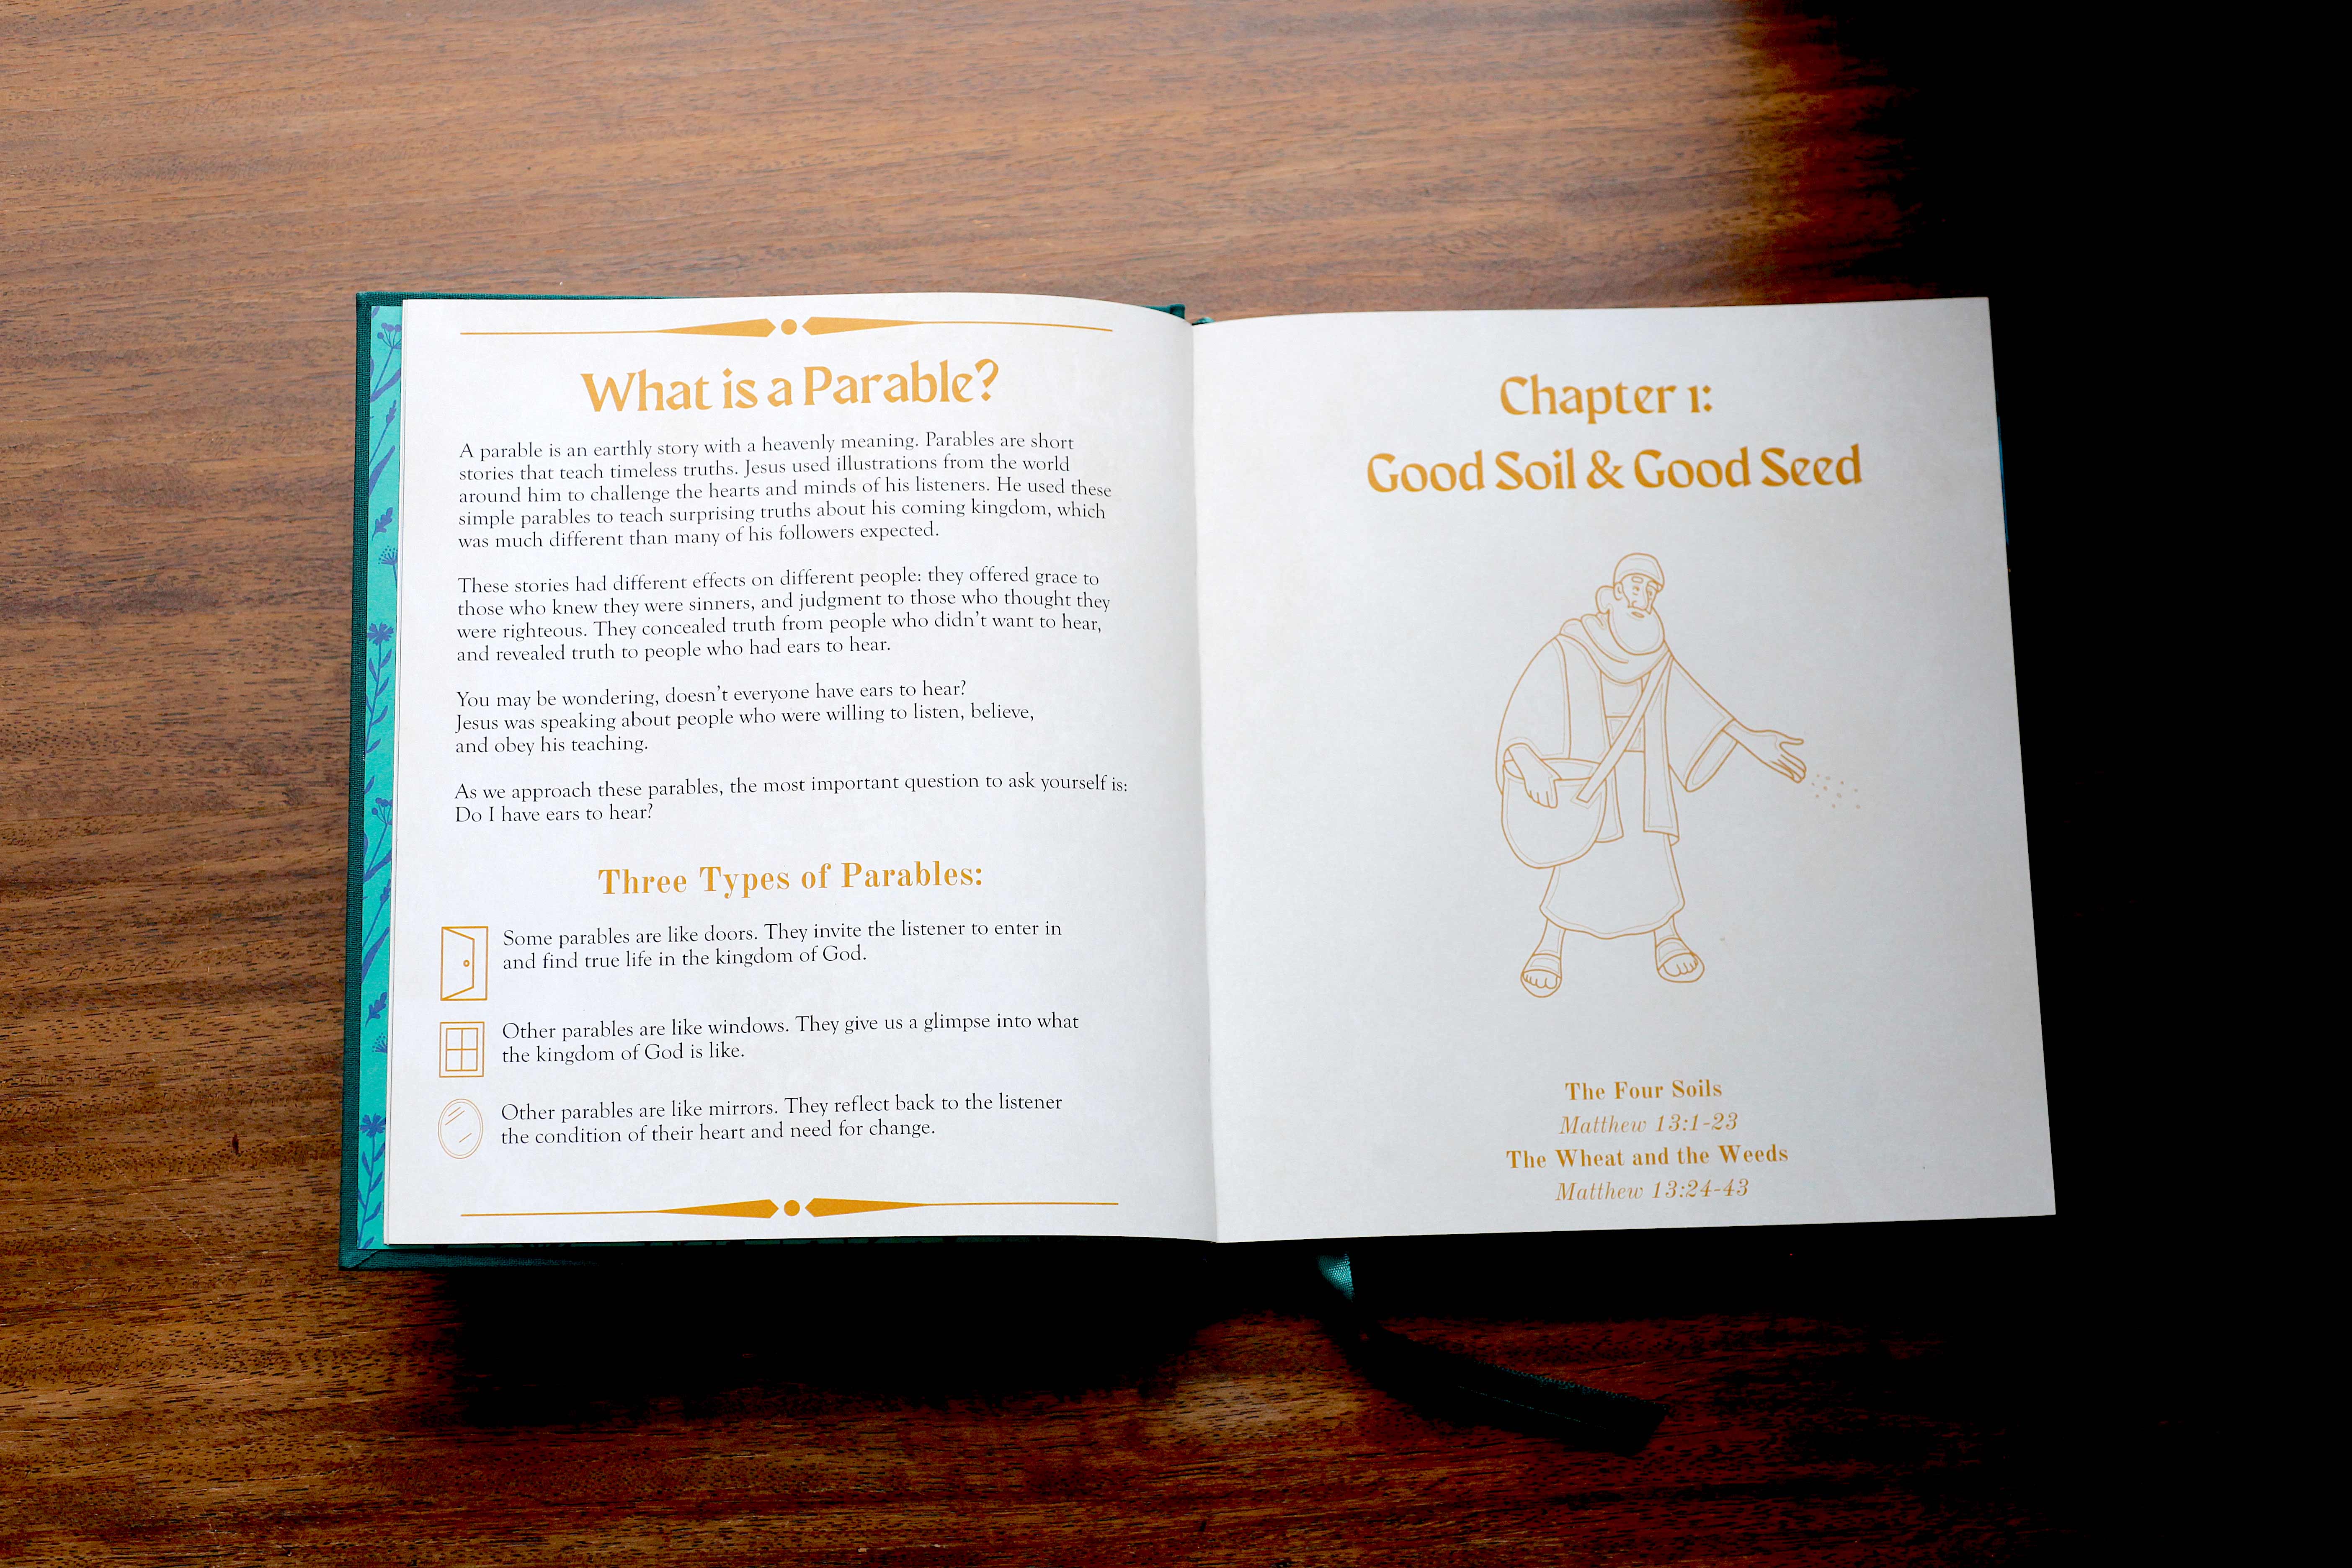 What is a Parable?
A parable is an earthly story with a heavenly meaning. Parables are short
stories that teach timeless truths. Jesus used illustrations from the world
around him to challenge the hearts and minds of his listeners. He used these
simple parables to teach surprising truths about his coming kingdom, which
was much different than many of his followers expected.
These stories had different effects on different people: they offered grace to
those who knew they were sinners, and judgment to those who thought they
were righteous. They concealed truth from people who didn't want to hear,
and revealed truth to people who had ears to hear.
You may be wondering, doesn't everyone have ears to hear?
Jesus was speaking about people who were willing to listen, believe,
and obey his teaching.
As we approach these parables, the most important question to ask yourself is:
Do I have ears to hear?
Three Types of Parables:
Some parables are like doors. They invite the listener to enter in
and find true life in the kingdom of God.
Other parables are like windows. They give us a glimpse into what
the kingdom of God is like.
Other parables are like mirrors. They reflect back to the listener
the condition of their heart and need for change.
Chapter 1:
Good Soil & Good Seed
The Four Soils
Matthew 13:1-23
The Wheat and the Weeds
Matthew 13:24-43